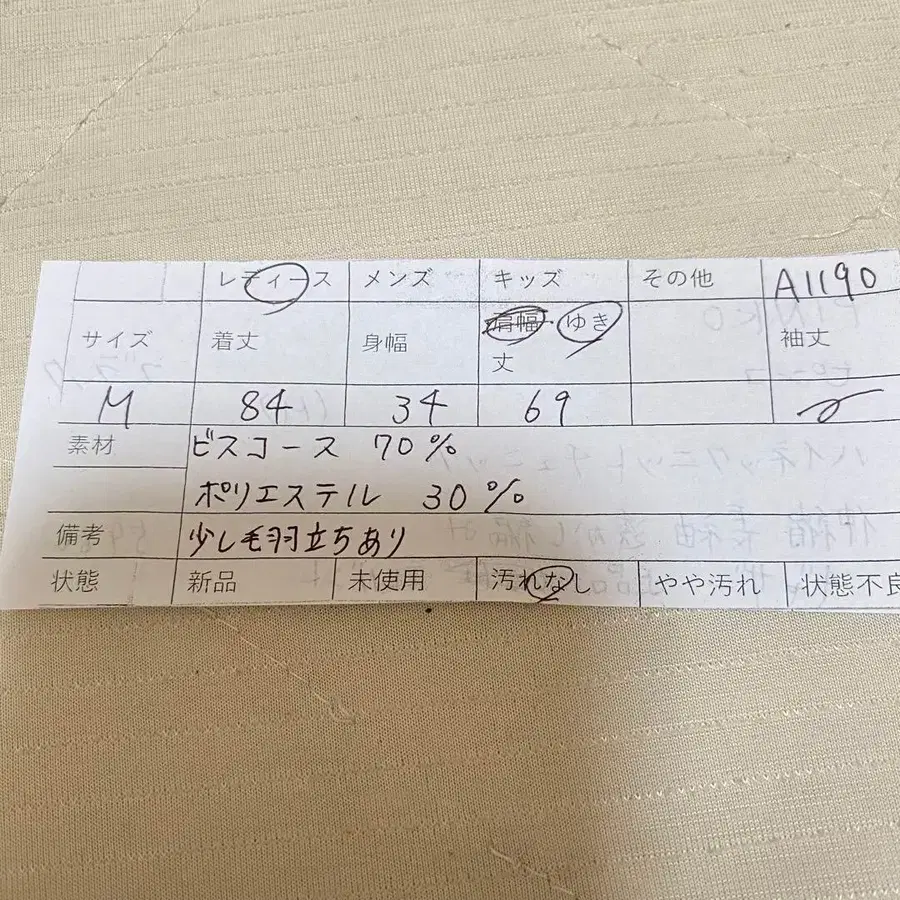 レディース メンズ キッズ その他 A1190
サイズ 着丈 身幅 肩幅・ゆき丈 袖丈
M 84 34 69
素材 ビスコース 70%
ポリエステル 30%
備考 少し毛羽立ちあり
状態 新品 未使用 汚れなし やや汚れ 状態不良